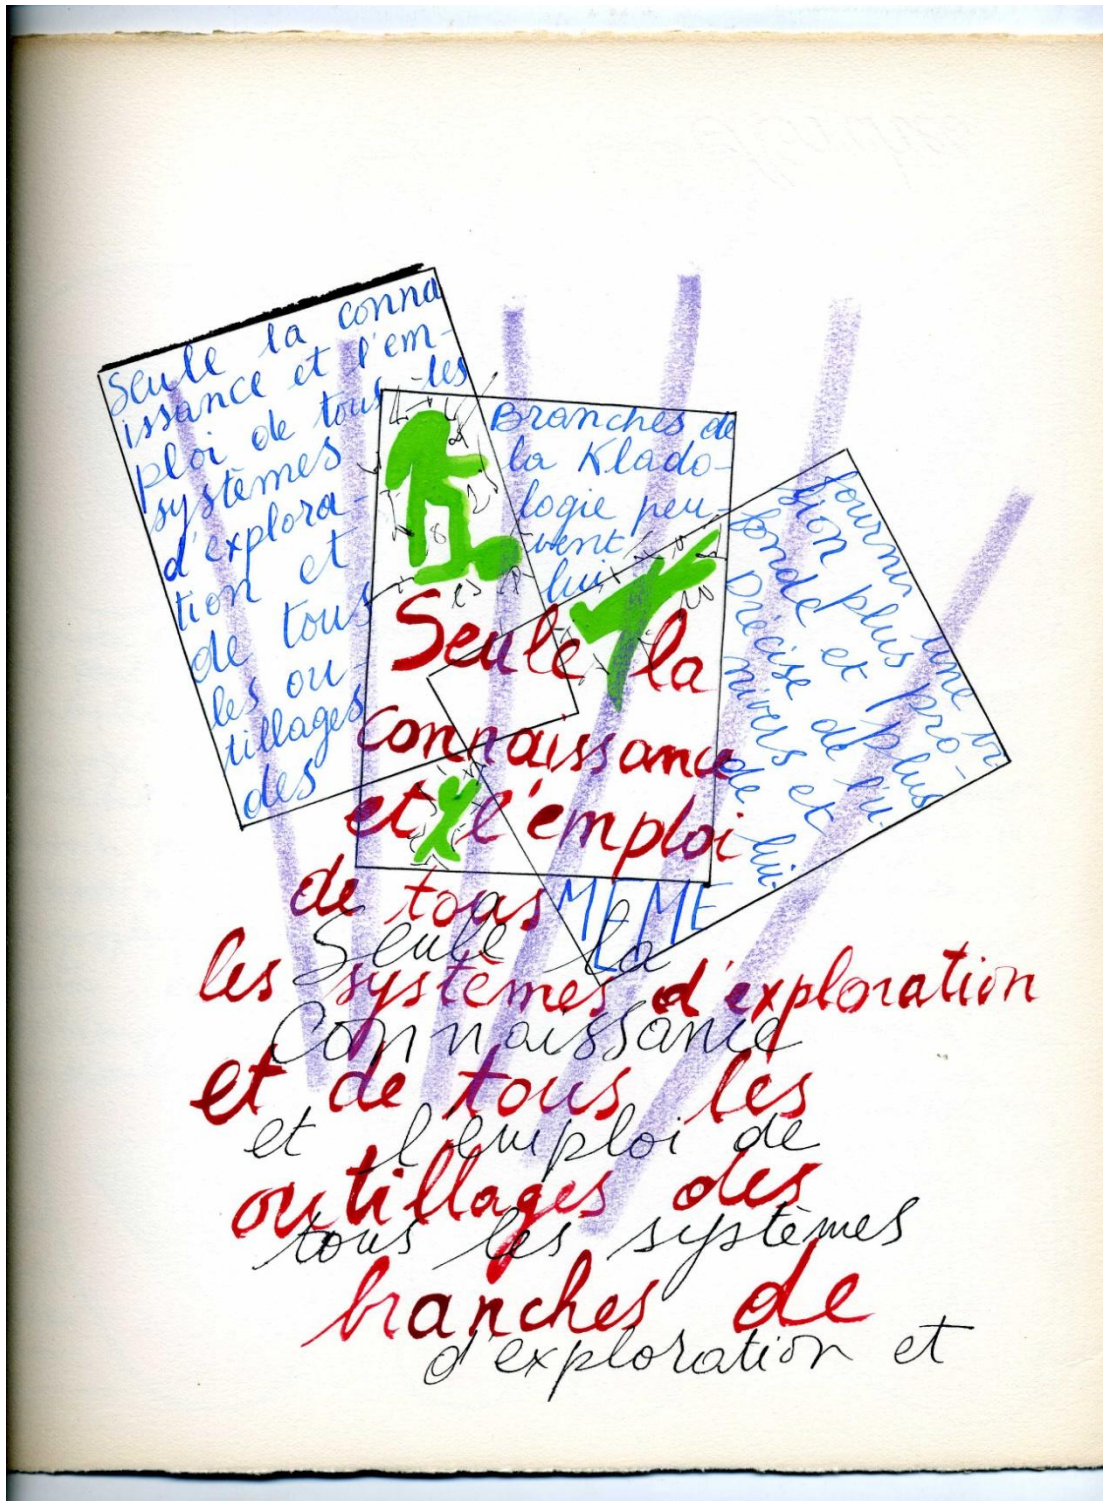 Seule la conna
issance et l'em-
ploi de tous les
systèmes
d'explora-
tion et
de tous
les ou-
tillages
des
Branches de
la Klado-
logie peu-
vent
lui
fournir une vi
sion plus pro-
fonde et plus
Précise de l'u-
nivers et
de lui-
MEME
Seule la
connaissance
et l'emploi
de tous
les systèmes d'exploration
et de tous les
outillages des
branches de
Seule la
Connaissance
et l'emploi de
tous les systèmes
d'exploration et